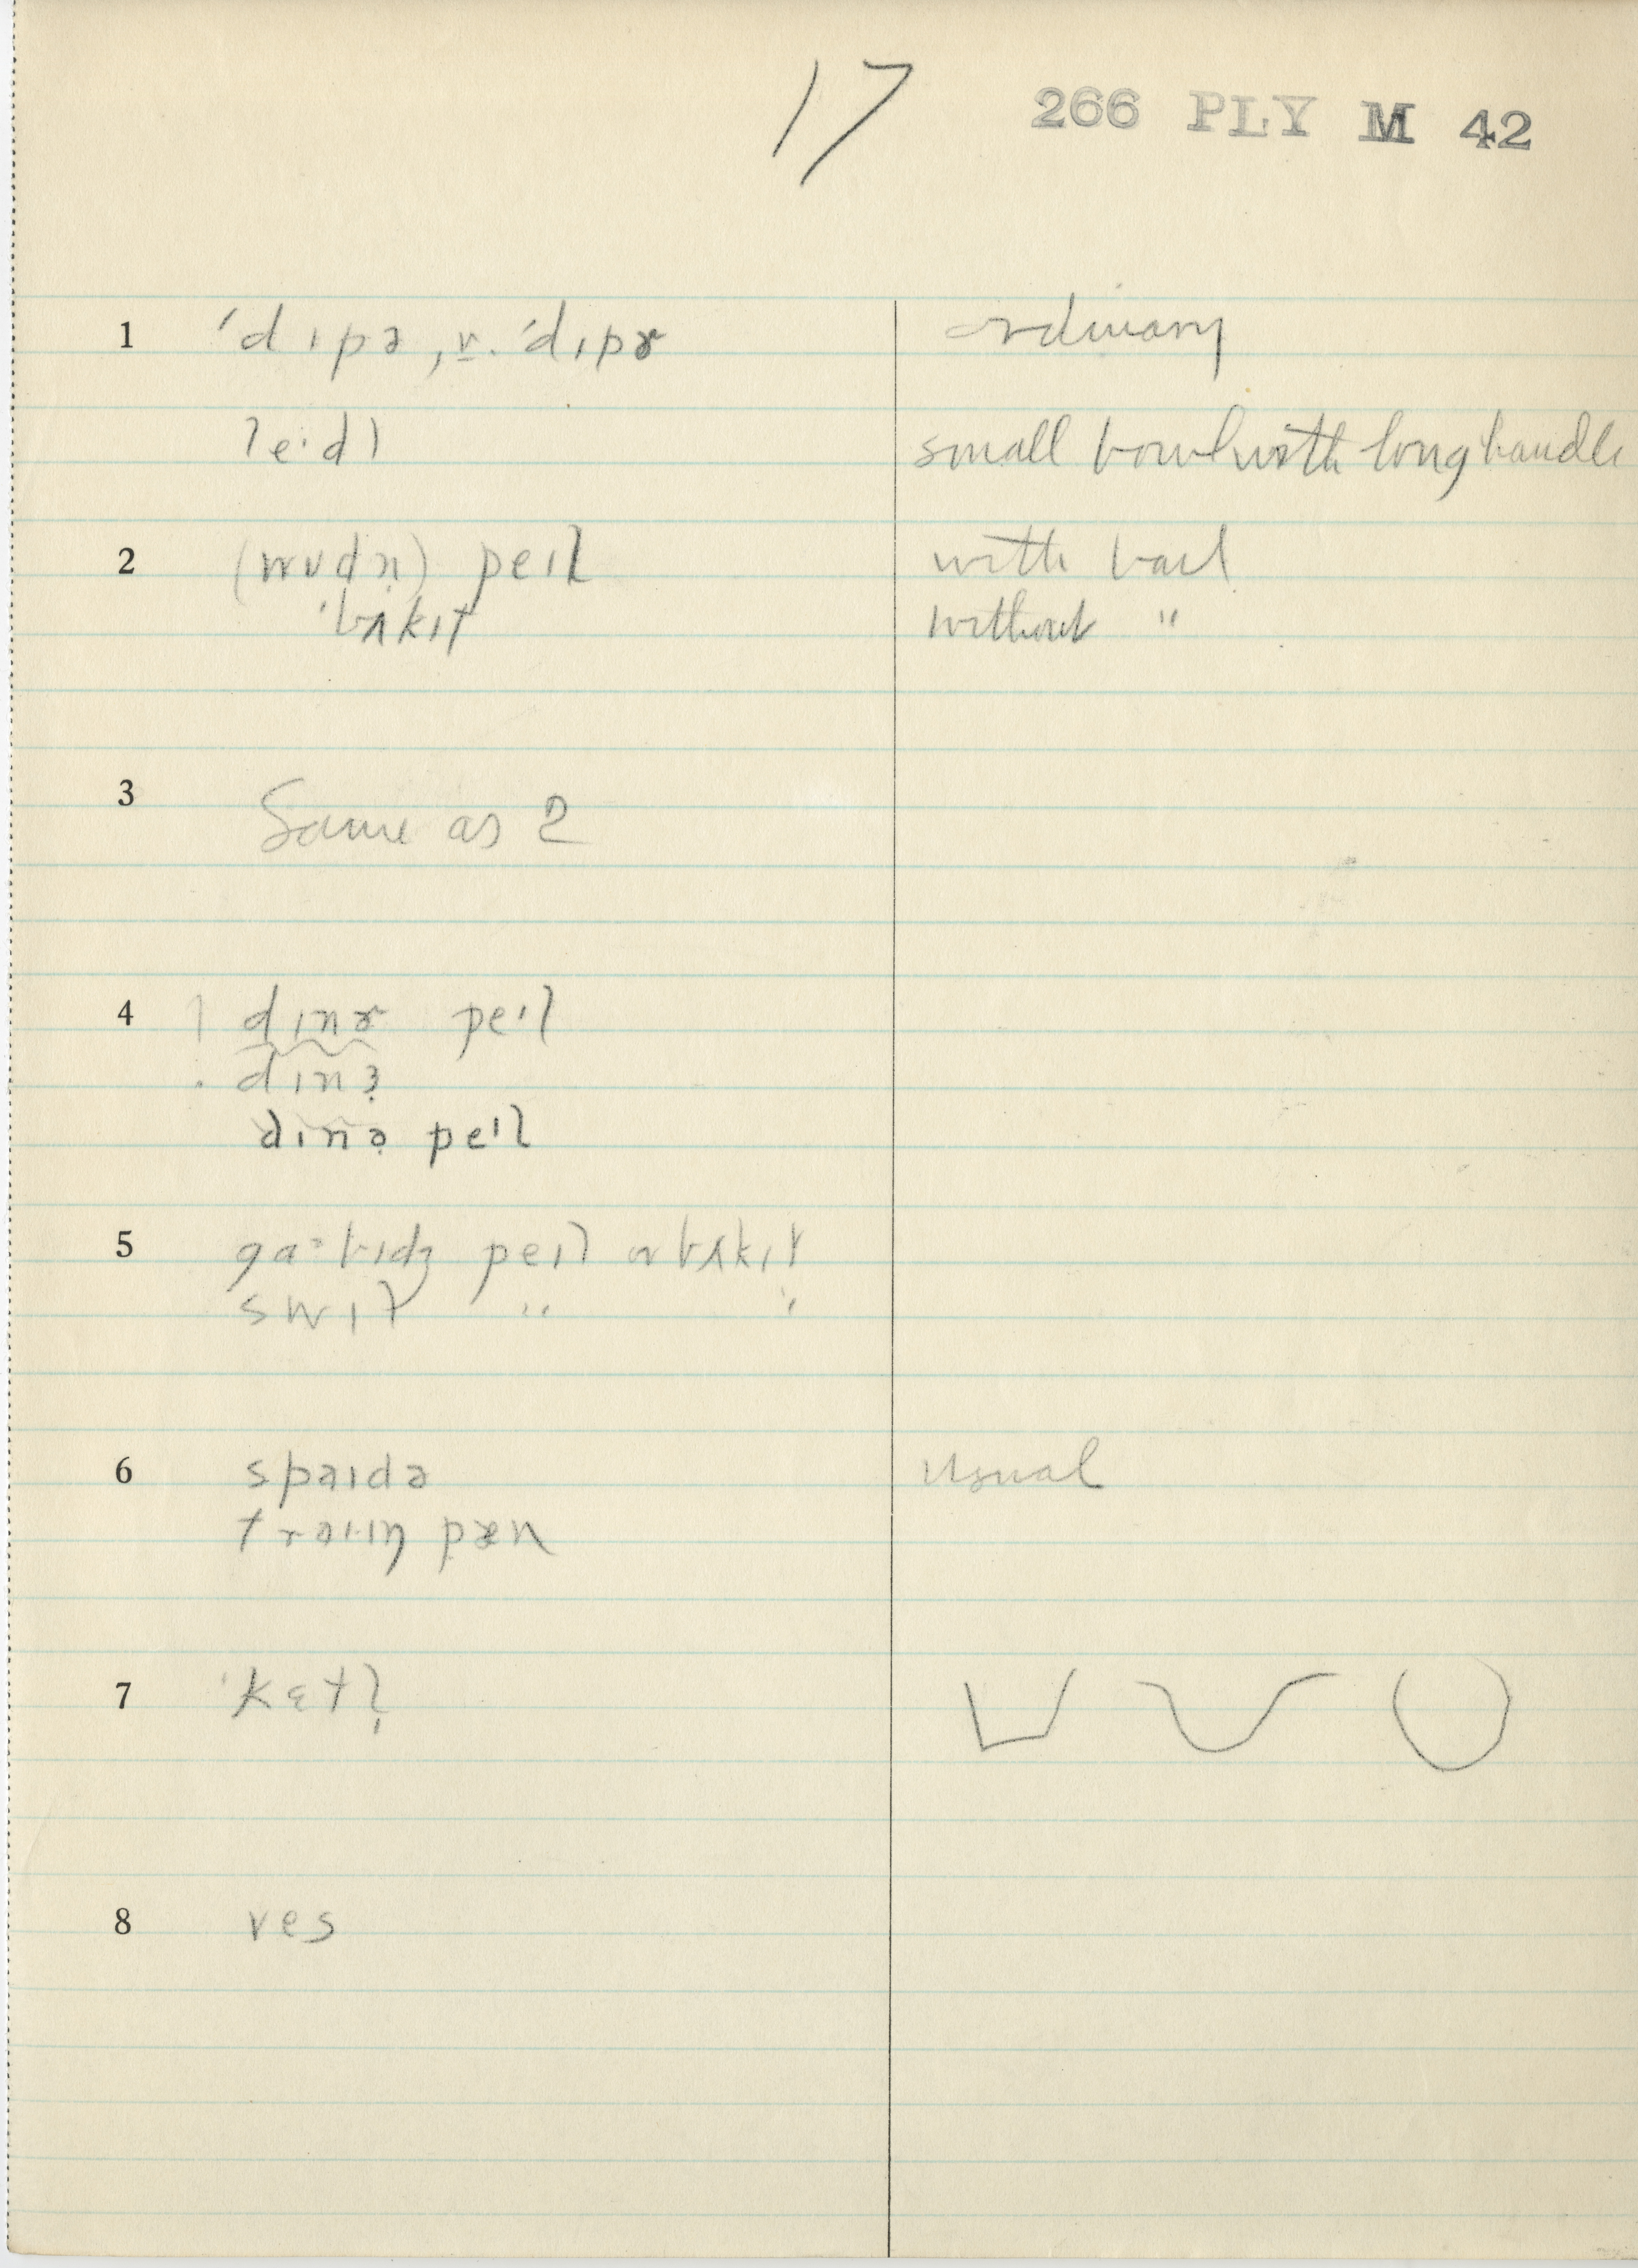 17 266 PLY M 42
1 ˈdɪpə, v. ˈdɪpɚ ordinary
leˑdl small bowl with long handle
2 (wudn̩) peɪl with bail
ˈbʌkɪt without "
3 Same as 2
4 dɪnɚ peɪl
dɪnɜ
dɪnə peɪl
5 gaˑbɪdʒ peɪl or bʌkɪt
swɪl " "
6 spaɪdə usual
fraɪɪŋ pæn
7 ˈkɛtl̩
8 ves